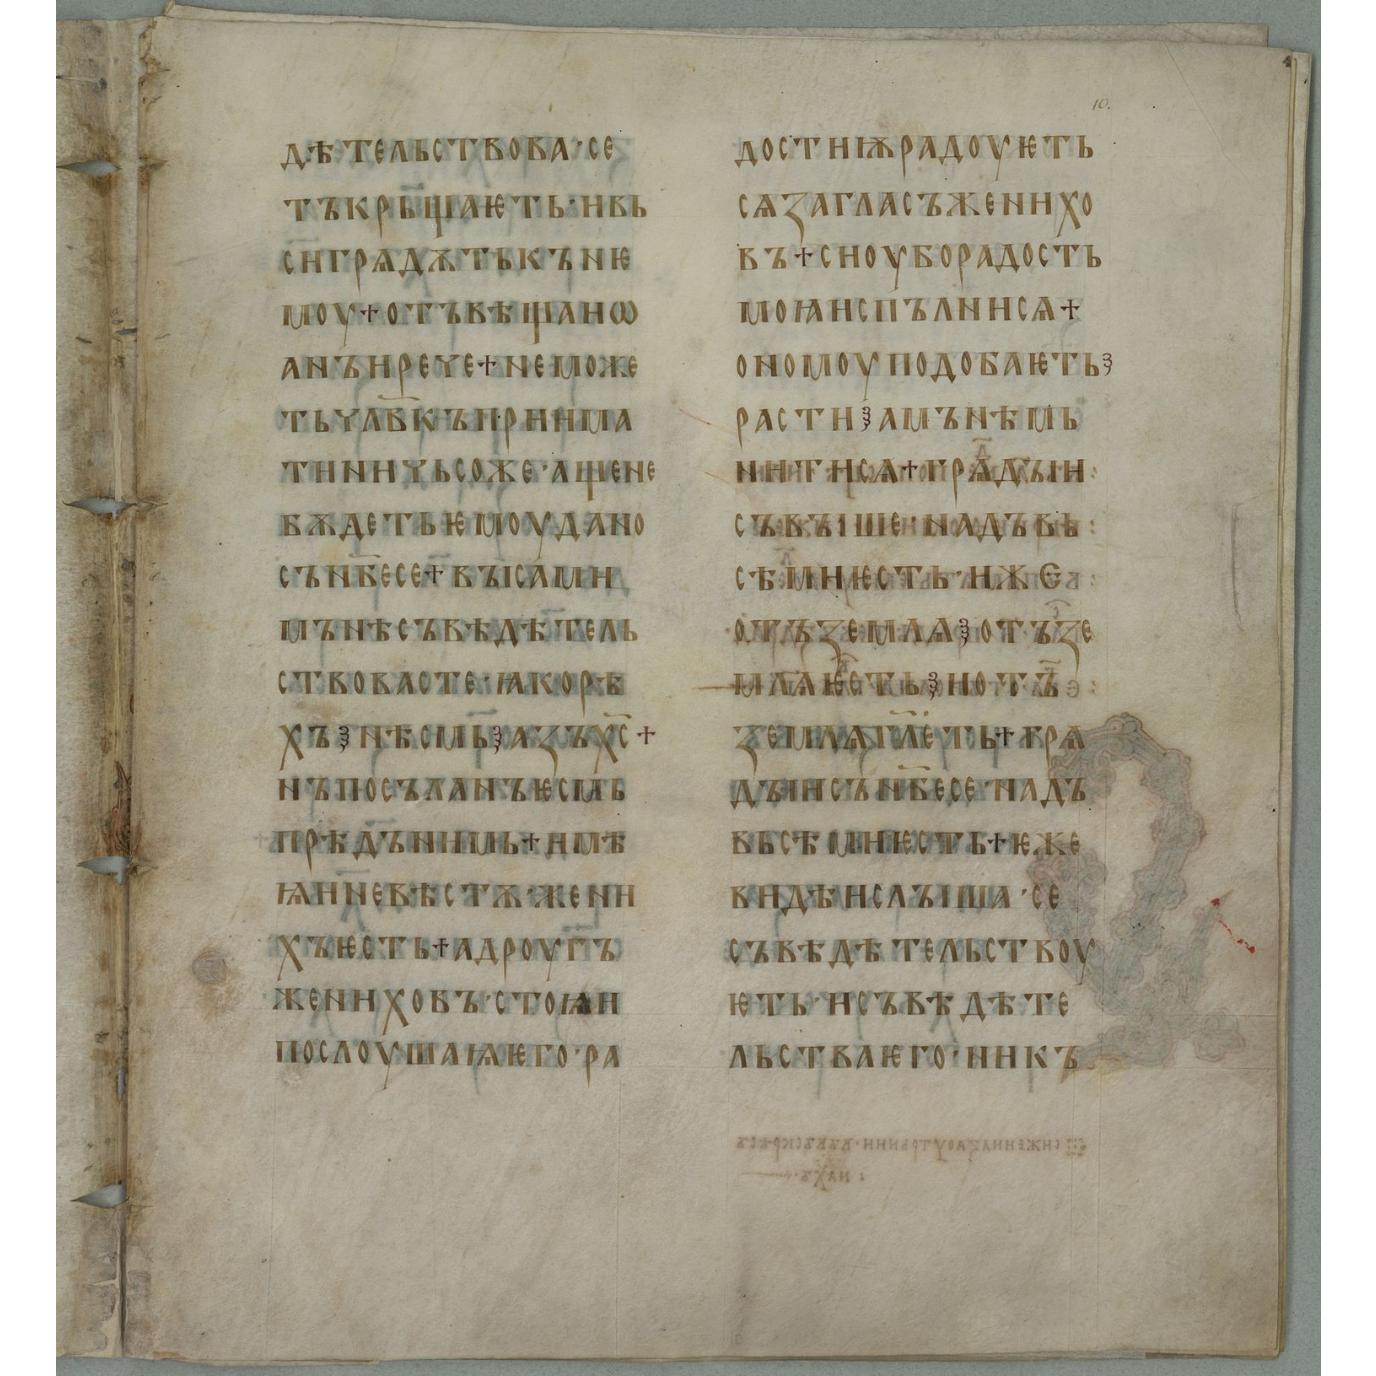 10.
дѣтельствова·се
тъкрьщаѥть·ивь
си грѧдѫтькънѥ
моу+отъвѣщаиѡ
анъирече+неможе
тьчлв҃къприима
тиничьсоже·ащене
бѫдетьѥмоудано
сън҃бесе+въісами
мънѣсъвѣдѣтель
ствовасте·ꙗкорѣ
хъ꙳нѣсмь꙳азъх҃с+
нъпосъланъѥсмь
прѣдънимь+имѣ
ꙗиневѣстѫ·жени
хъѥсть+адроугъ
жениховъ·стоꙗи
послоушаꙗѥго·ра
достиѭрадоуѥть
сѧзагласъженихо
въ+сиоуборадость
моꙗиспълнисѧ+
ономоуподобаѥть꙳
расти꙳амънѣмь
нитисѧ+грѧдъıи
съвъıше·надъвь
сѣмиѥсть·иже
отъземлѧ꙳отъзе
млѧѥсть꙳иотъ
землѧгл҃еть+грѧ
дъıисън҃бесенадъ
вьсѣмиѥсть+ѥже
видѣислъıша·се
съвѣдѣтельствоу
ѥть·исъвѣдѣте
льстваѥго·никъ